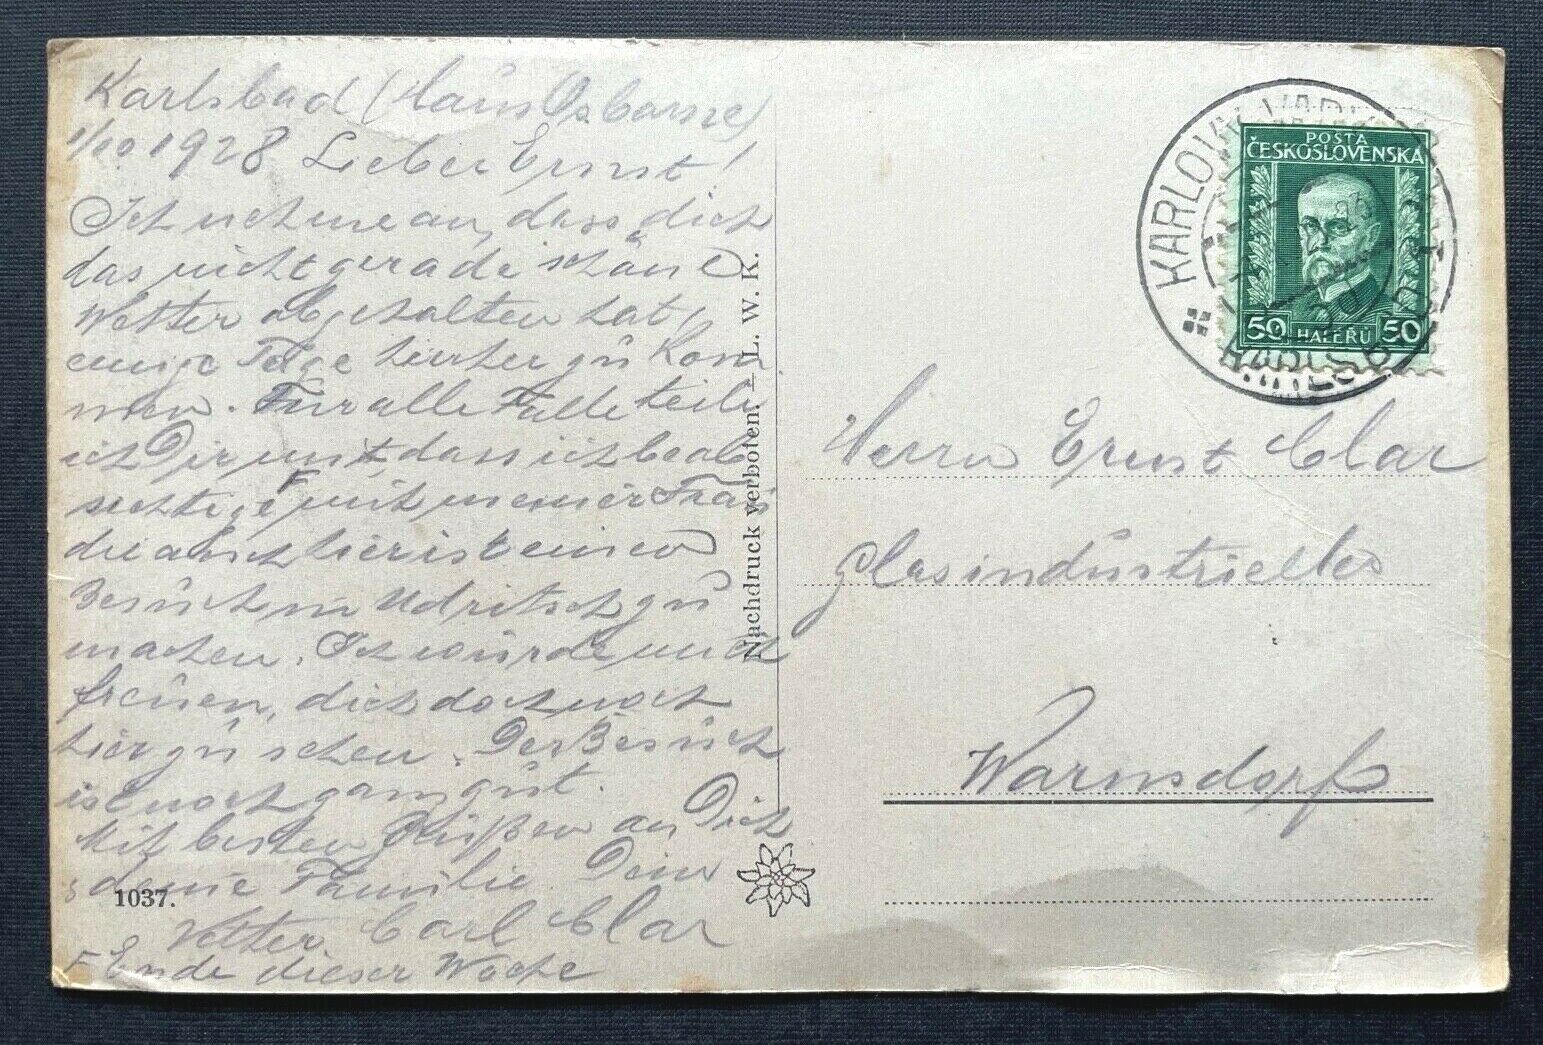 Karlsbad (Haus Osborne)
1/10 1928 Lieber Ernst!
Ich nehme an, dass dich
das nicht gerade schöne
Wetter abgehalten hat,
einige Tage hierher zu kom
men. Für alle Fälle teile
ich Dir mit, dass ich beab
sichtige F mit meiner Frau
die auch hier ist einen
Besuch in Udritsch zu
machen. Ich würde mich
freuen, dich doch noch
hier zu sehen. Der Besuch
ist noch ganz gut.
Mit besten Grüßen an Dich
deine Familie. Dein
Vetter Carl Clar
F Ende dieser Woche
1037.
Nachdruck verboten. L. W. K.
POSTA
ČESKOSLOVENSKÁ
50 HALÉŘŮ 50
KARLOVY VARY
KARLSBAD
Herrn Ernst Clar
Glasindustrieller
Warnsdorf